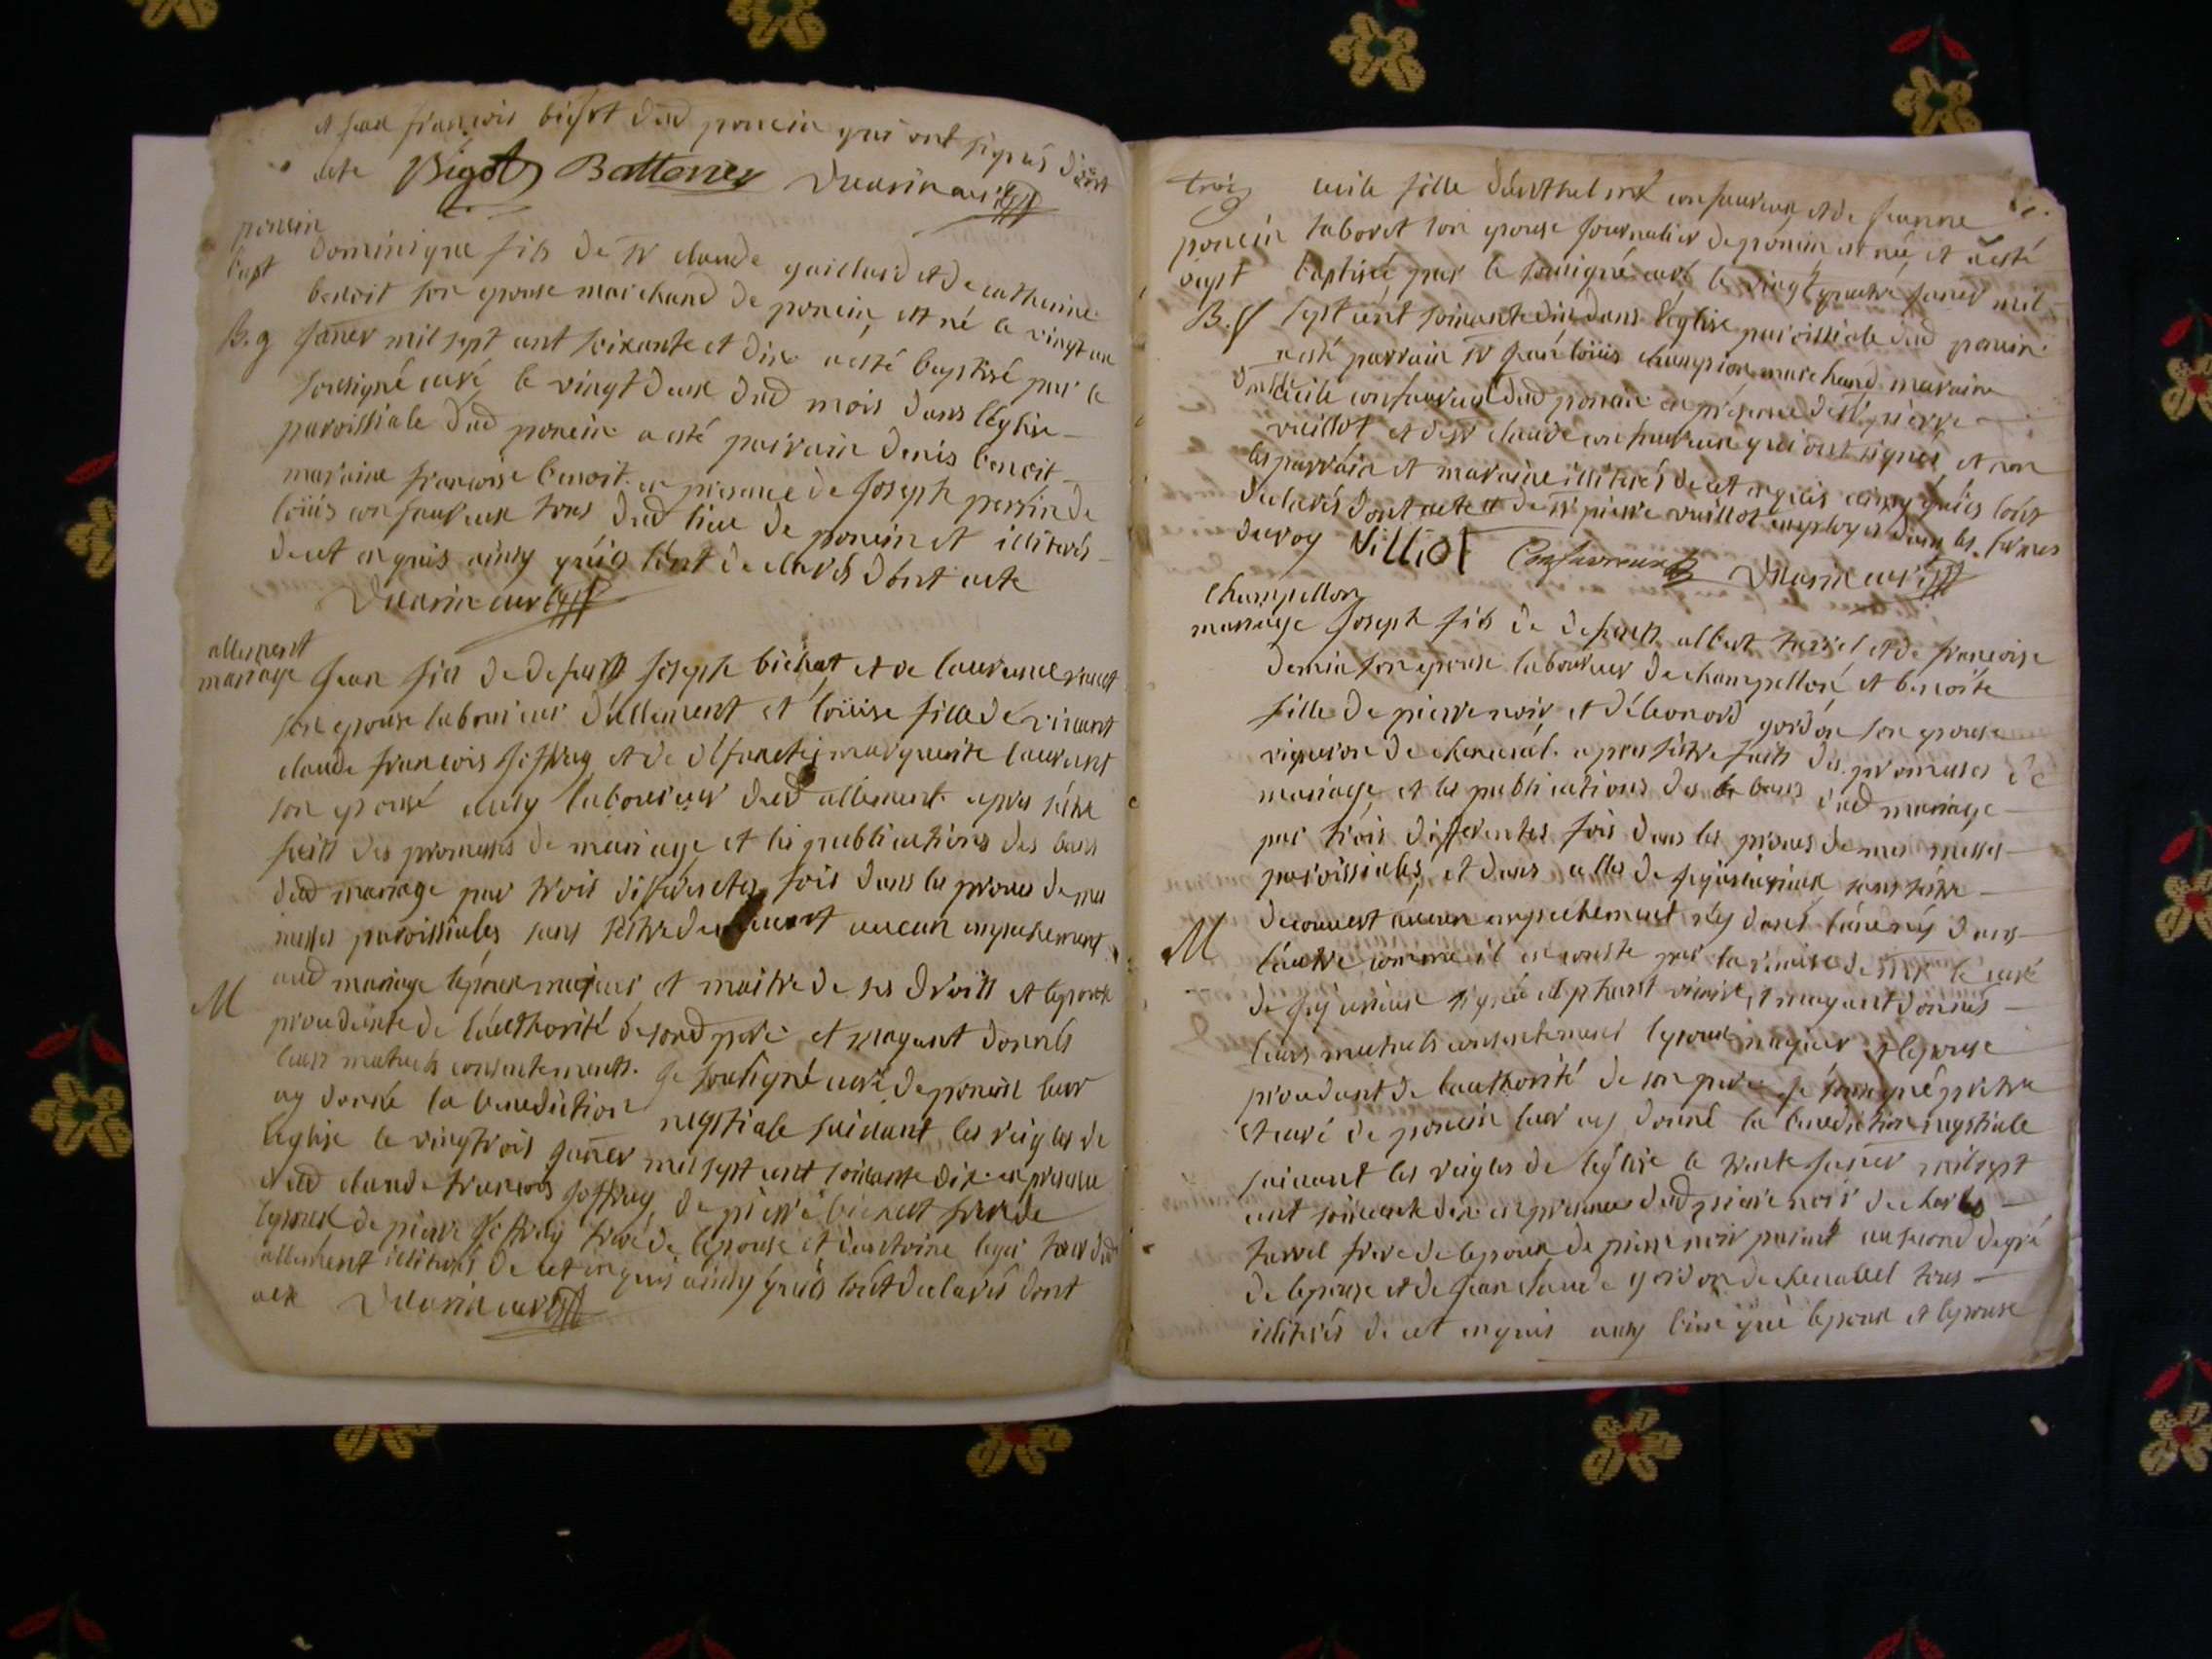 et jean françois bigot dud poncin qui ont signés dont
acte Bigot Battoney Duarin curé
poncin
bapt
dominique fils de sr claude gaillard et de catherine
benoit son epouse marchand de poncin, est né le vingt un
B. g janer mil sept cent soixante et dix a esté baptisé par le
sousigné curé le vingt deux dud mois dans léglise
paroissiale dud poncin a esté pairain denis benoit
maraine francoise benoit en presance de joseph perrin de
loüis confavreux tous dud lieu de poncin et illiterés
de ce enquis ainsy quils lont declarés dont acte
Duarin curé
allement
mariage jean fils de defunt joseph bichat et de laurence
son epouse laboureur dallement et loüise fille de vivant
claude francois joffray et de defuncte marguerite laurent
son epouse aussy laboureur dud allement apres sêtre
faits des promesses de mariage et les publications des bans
dud mariage par trois differentes fois dans les prones de mes
messes paroissiales sans sêtre decouvert aucun empechement
M aud mariage lepoux majeur et maitre de ses droits et lepouse
procedante de lauthorité de sond pere et mayant donnés
leurs mutuels consentements. je sousigné curé de poncin leur
ay donné la benediction nuptiale suivant les reigles de
leglise le vingtrois janer mil sept cent soixante dix en presance
dud claude francois joffray, de pierre bichat frere de
lepoux de pierre joffray frere de lepouse et dantoine leger tous dud
allement illiterés de ce enquis ainsy quils lont declarés dont
acte Duarin curé
trois
poncin
bapt
B. f
cecile fille danthelme confavreux et de jeanne
taboret son epouse journalier de poncin est née, et a esté
baptisée par le sousigné curé le vingt quatre janer mil
sept cent soixante dix dans léglise paroissiale dud poncin
a esté parrain sr jean loüis champion marchand maraine
cecile confavreux dud poncin en présence de sr pierre
vuillot et de sr claude confavreux qui ont signés, et non
les parrain et maraine illiterés de ce enquis ainsy quils lont
declarés dont acte et de sr pierre vuillot employés dans les fermes
du roy Villiot Confavreux Duarin curé
champellon
mariage joseph fils de defunt albert tarrel et de francoise
demia son epouse laboureur de champellon, et benoite
fille de pierre noir et déleonord gordon son epouse
vigneron de chenavel. apres sêtre faits des promesses de
mariage et les publications des bans dud mariage
par trois differentes fois dans les prones de mes messes
paroissiales, et dans celles de jujurieux sans sêtre
decouvert aucun empechement ny dans lune ny dans
M lautre comme il en conste par la remise de Mr le curé
de jujurieux signée et mayant donnés
leurs mutuels consentement lepoux majeur et lepouse
procedant de lauthorité de son pere je sousigné prêtre
et curé de poncin leur ay donné la benediction nuptiale
suivant les reigles de léglise le trente janer mil sept
cent soixante dix en presance dud pierre noir de charles
tarrel frere de lepoux de pierre noir parent au second degré
de lepouse et de jean claude gordon de chenavel tous
illiterés de ce enquis aussy bien que lepoux et lepouse